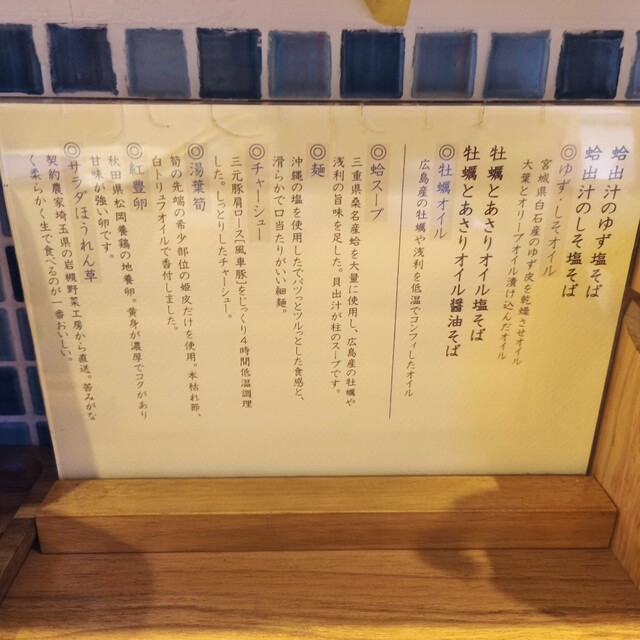 蛤出汁のゆず塩そば
蛤出汁のしそ塩そば
◎ゆず・しそオイル
宮城県白石産のゆず皮を乾燥させオイル
大葉とオリーブオイル漬け込んだオイル
牡蠣とあさりオイル塩そば
牡蠣とあさりオイル醤油そば
◎牡蠣オイル
広島産の牡蠣や浅利を低温でコンフィしたオイル
◎蛤スープ
三重県桑名産蛤を大量に使用し、広島産の牡蠣や
浅利の旨味を足した。貝出汁が柱のスープです。
◎麺
沖縄の塩を使用したでパツッとツルっとした食感と、
滑らかで口当たりがいい細麺。
◎チャーシュー
三元豚肩ロース[風車豚]をじっくり4時間低温調理
した。しっとりしたチャーシュー。
◎湯葉筍
筍の先端の希少部位の姫皮だけを使用。本枯れ節、
白トリュフオイルで香付しました。
◎紅豊卵
秋田県松岡養鶏の地養卵。黄身が濃厚でコクがあり
甘味が強い卵です。
◎サラダほうれん草
契約農家埼玉県の岩槻野菜工房から直送。苦みがな
く柔らかく生で食べるのが一番おいしい。